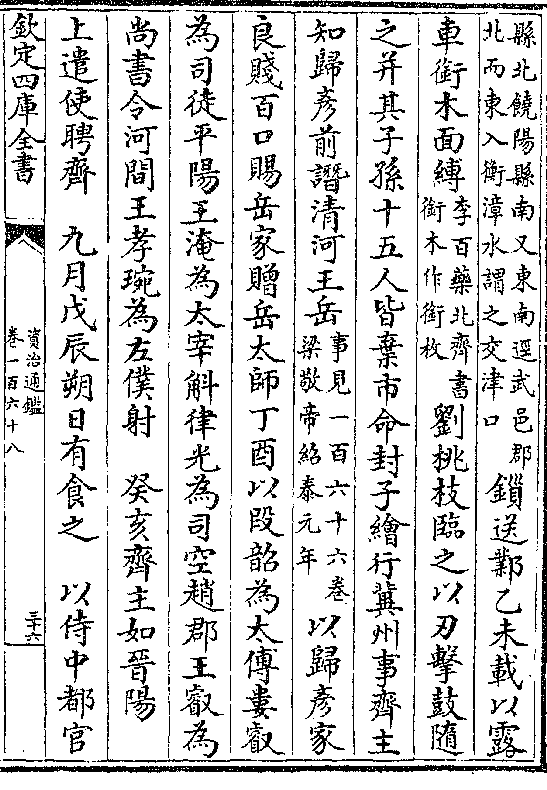 縣北饒陽縣南又東南逕武邑郡
北而東入衡漳水謂之交津口
鎖送鄴乙未載以露
車銜木面縛
李百藥北齊書
銜木作銜枚
劉桃枝臨之以刃擊鼓隨
之并其子孫十五人皆棄市命封子繪行冀州事齊主
知歸彥前譖清河王岳
事見一百六十六卷
梁敬帝紹泰元年
以歸彥家
良賤百口賜岳家贈岳太師丁酉以段韶為太傅婁叡
為司徒平陽王淹為太宰斛律光為司空趙郡王叡為
尚書令河間王孝琬為左僕射 癸亥齊主如晉陽
上遣使聘齊 九月戊辰朔日有食之 以侍中都官
欽定四庫全書
資治通鑑
卷一百六十八
三十六